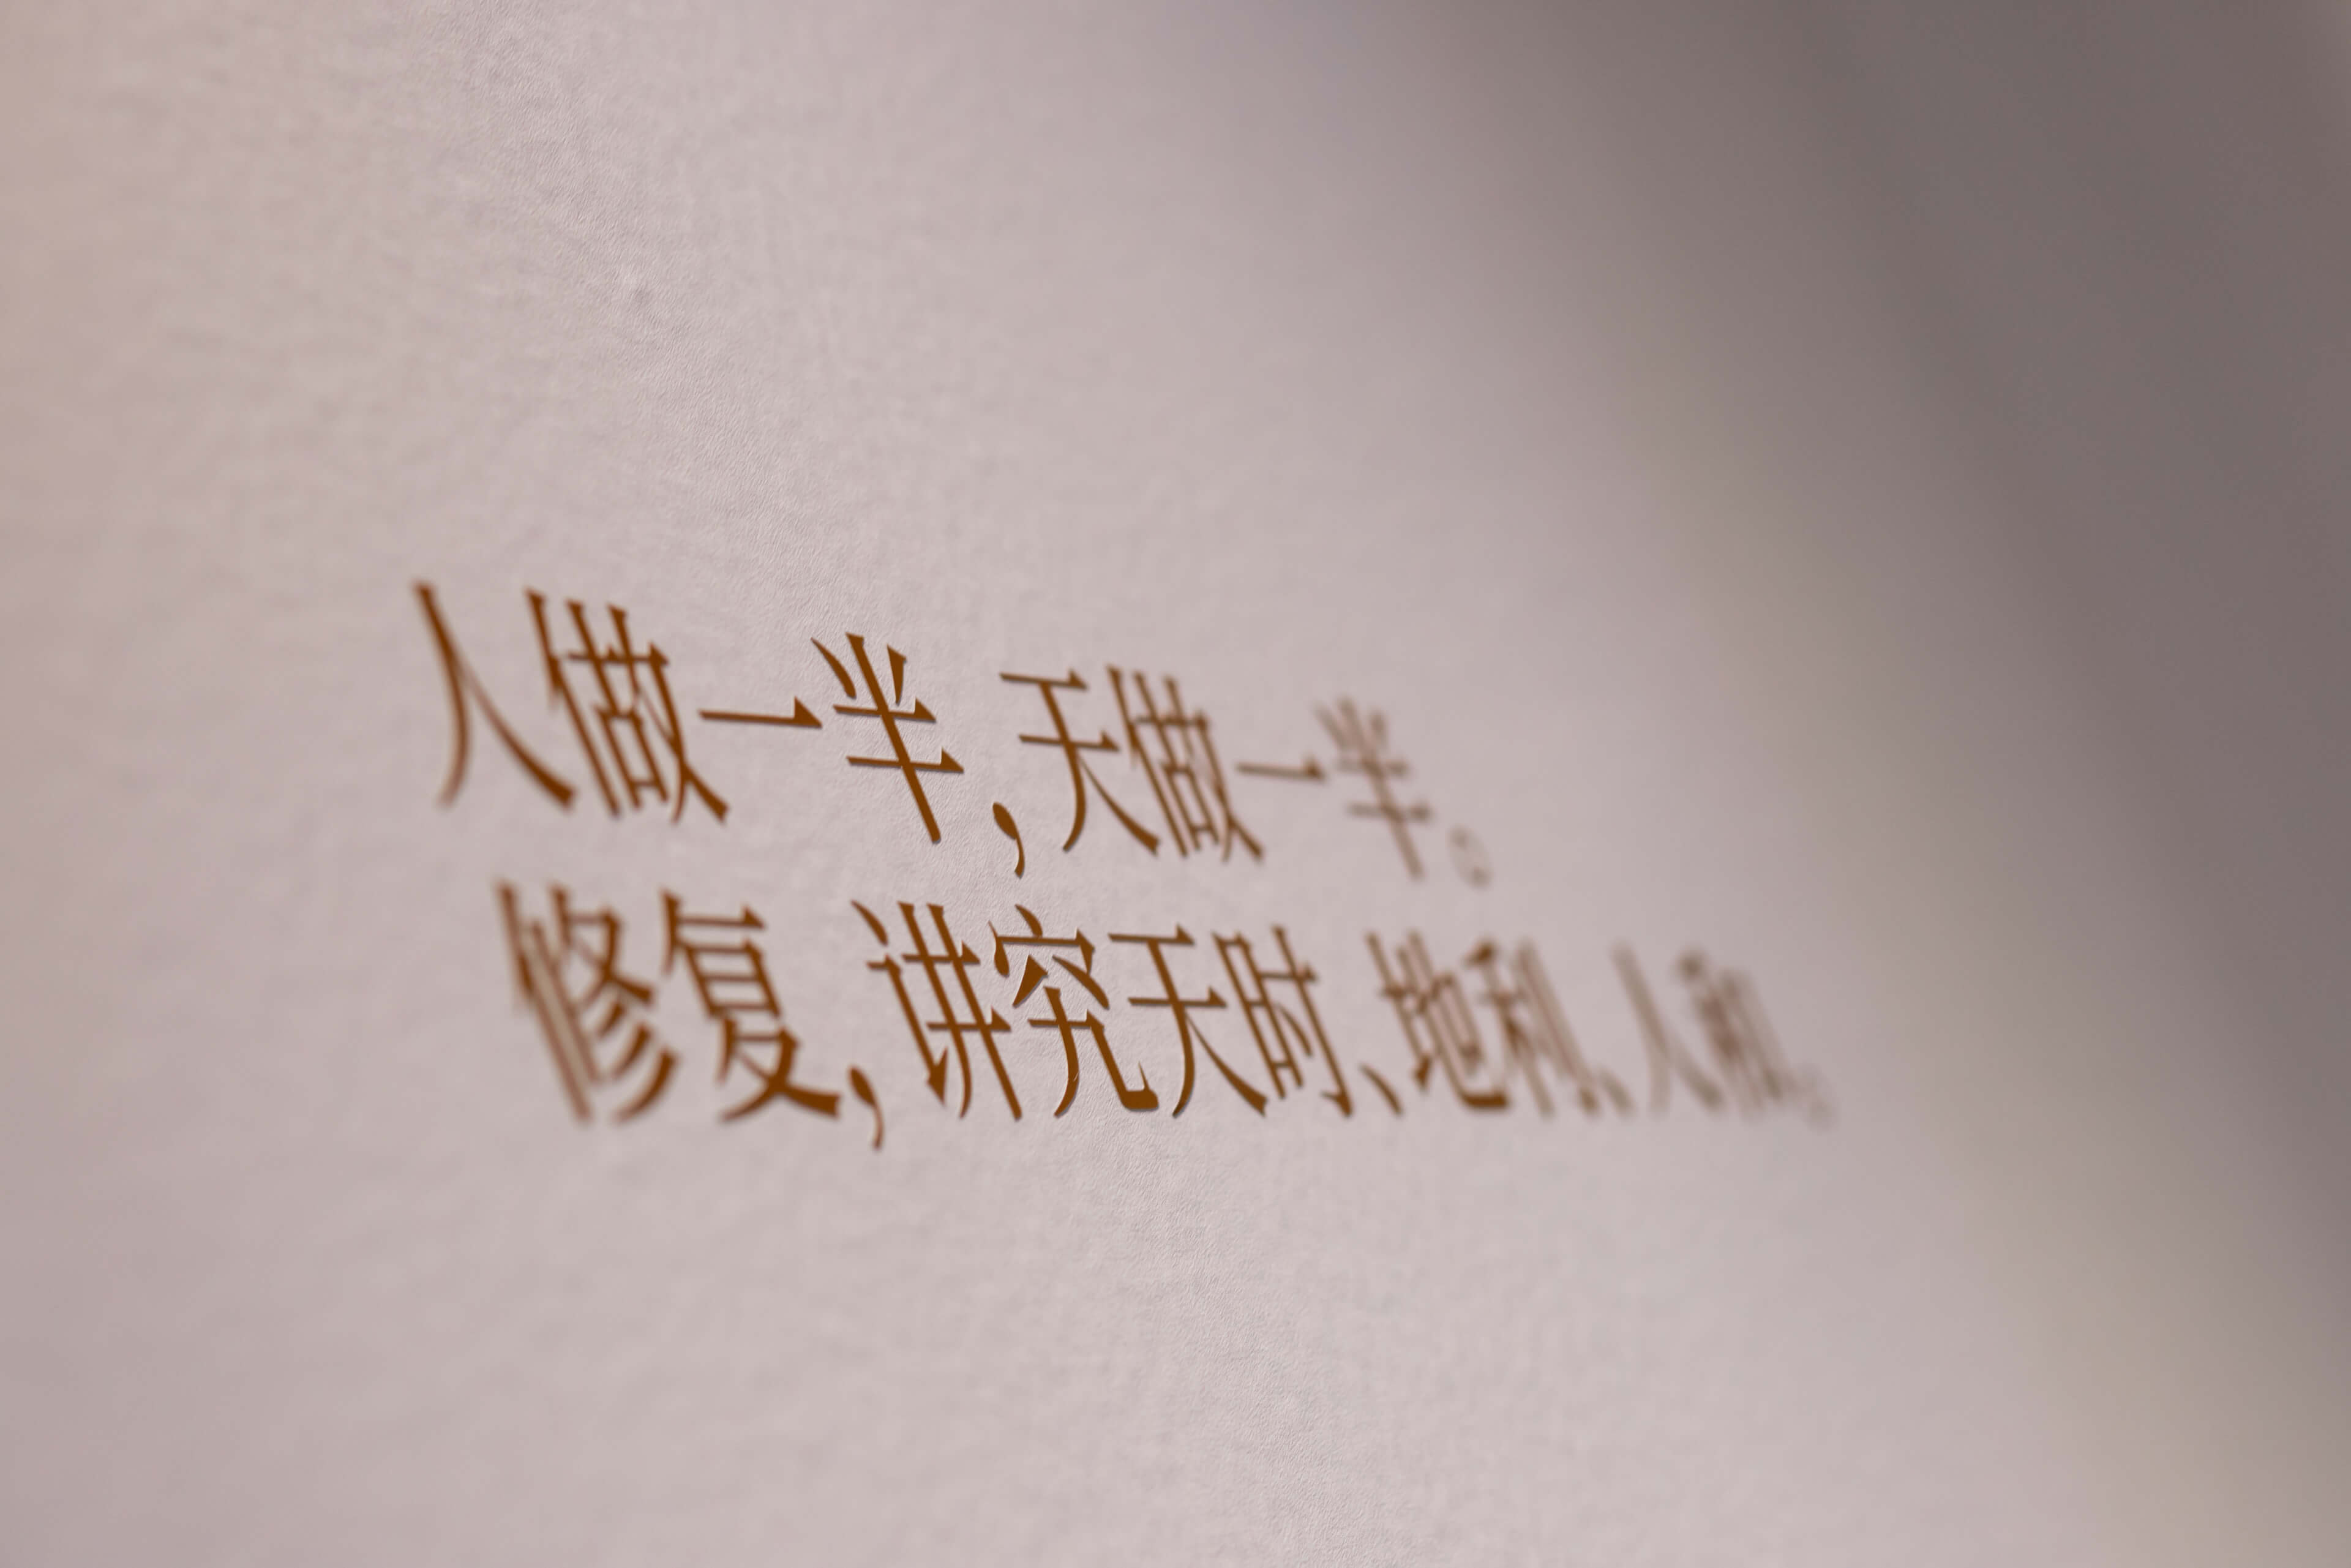 人做一半，天做一半。
修复，讲究天时、地利、人和。